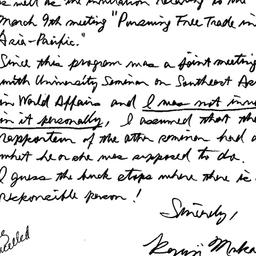 as well as the invitation relating to the
March 9th meeting "Pursuing Free Trade in
Asia-Pacific."
Since this program was a joint meeting
with University Seminar on Southeast As
in World Affairs and I was not inv
in it personally, I assumed that the
rapporteur of the other seminar had d
what he or she was supposed to do.
I guess the buck stops where there is a
responsible person!
Sincerely,